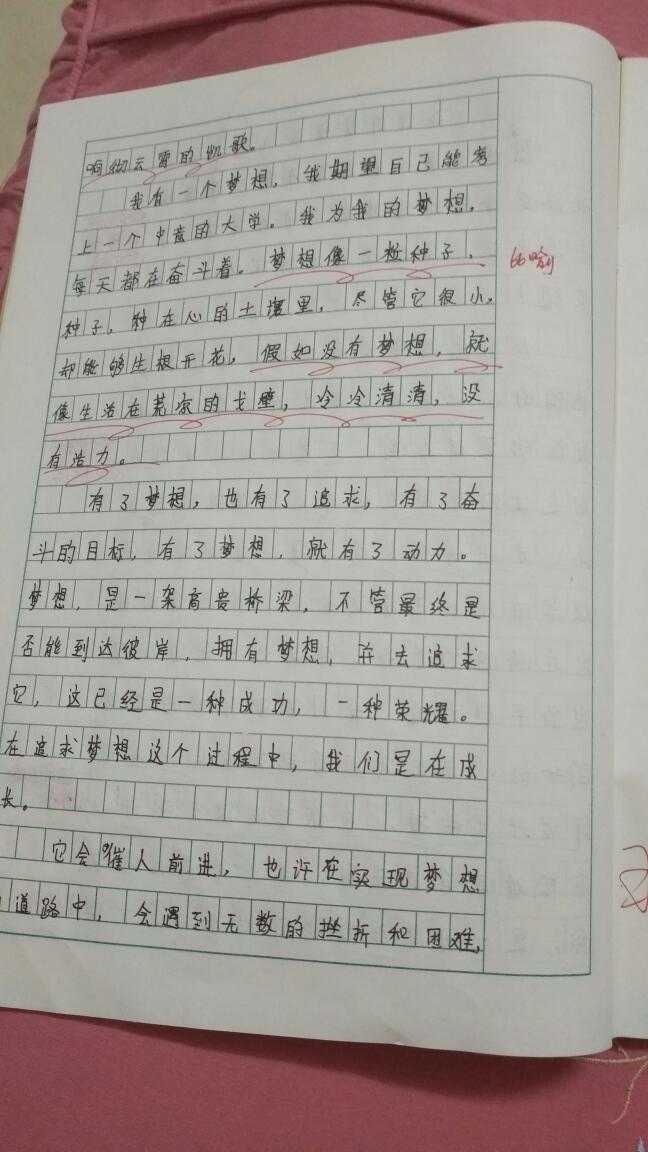 响彻云霄的凯歌。
我有一个梦想，我期望自己能考
上一个中意的大学。我为我的梦想，
每天都在奋斗着。梦想像一粒种子，
比喻
种子，种在心的土壤里，尽管它很小，
却能够生根开花，假如没有梦想，就
像生活在荒凉的戈壁，冷冷清清，没
有活力。
有了梦想，也有了追求，有了奋
斗的目标，有了梦想，就有了动力。
梦想，是一架高贵桥梁，不管最终是
否能到达彼岸，拥有梦想，并去追求
它，这已经是一种成功，一种荣耀。
在追求梦想这个过程中，我们是在成
长。
它会催人前进，也许在实现梦想
道路中，会遇到无数的挫折和困难，